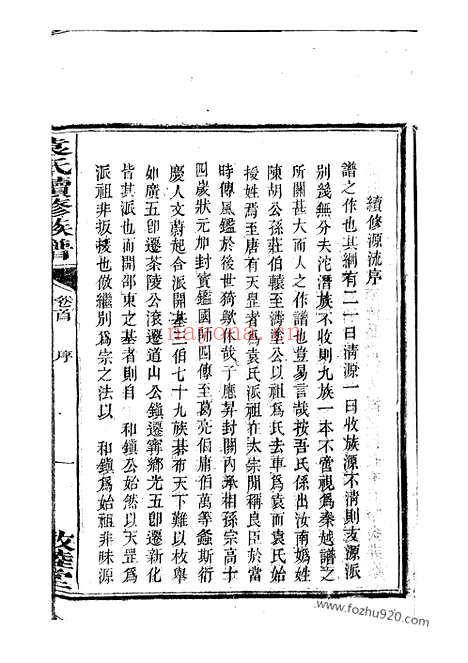 續修源流序
譜之作也其綱有二一曰清源一曰收族源不清則支源派
別幾無分夫沱潛族不收則九族一本不啻視為秦越譜之
所關甚大而人之作譜也豈易言哉按吾氏係出汝南媯姓
陳胡公孫莊伯轅至濤塗公以祖爲氏去車爲袁而袁氏始
援姓焉至唐有天罡者袁氏派祖在太宗閒稱良臣於當
時傳風鑑於後世猗歟休哉子應昇封關內丞相孫宗高十
四歲狀元加封寶鑑國師四傳至葛亮伯庸伯萬等螽斯衍
慶人文蔚起合派開基三伯七十九族碁布天下難以枚舉
如廣五郎遷茶陵公滾遷道山公鎮遷寧鄉光五郎遷新化
皆其派也而開邵東之基者則自 和鎮公始然以天罡爲
派祖非扳援也倣繼別爲宗之法以 和鎮爲始祖非昧源
袁氏續修族譜
卷首 序
一
敦睦堂
www.fozhu920.com